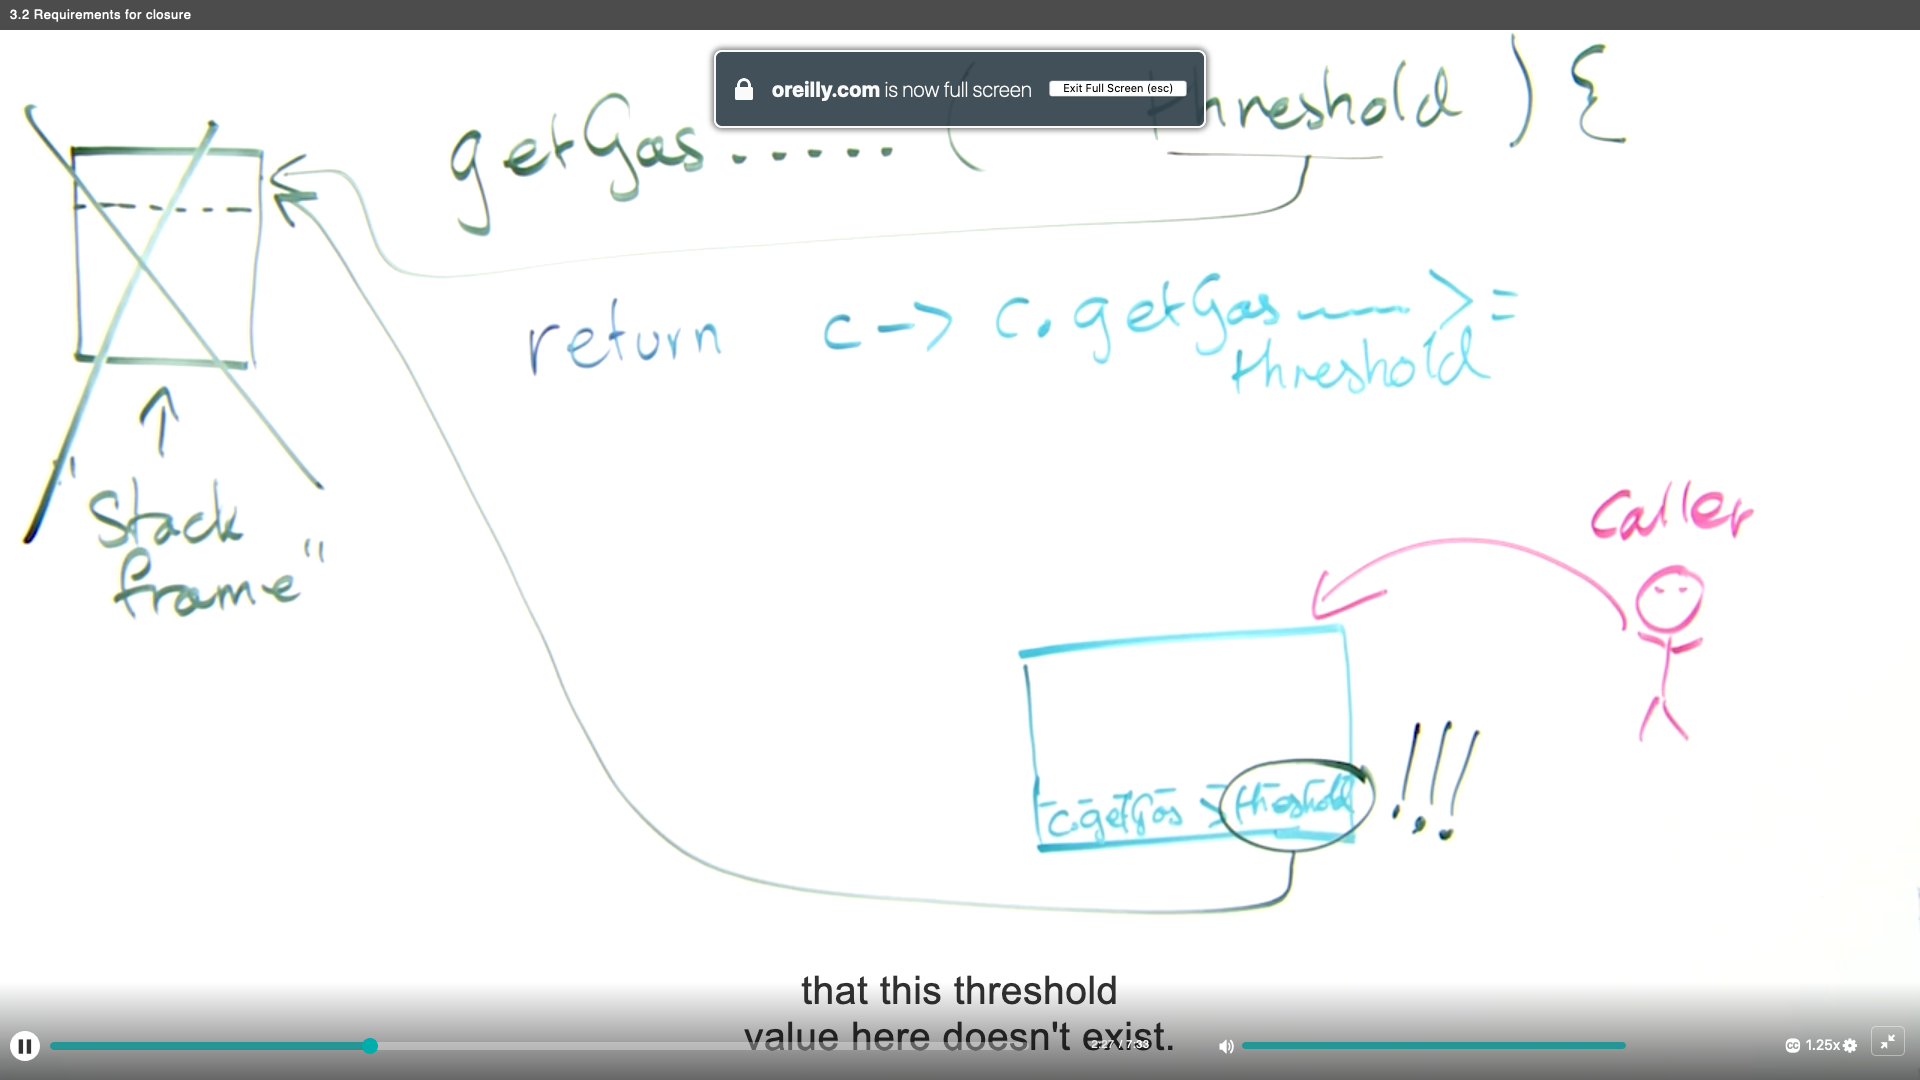 3.2 Requirements for closure
oreilly.com is now full screen Exit Full Screen (esc)
getGas ..... ( threshold ) {
return c -> c. getGas >=
threshold
"Stack
frame"
Caller
c.getGas > threshold !!!
that this threshold
value here doesn't exist.
2:27 / 7:33
CC 1.25x